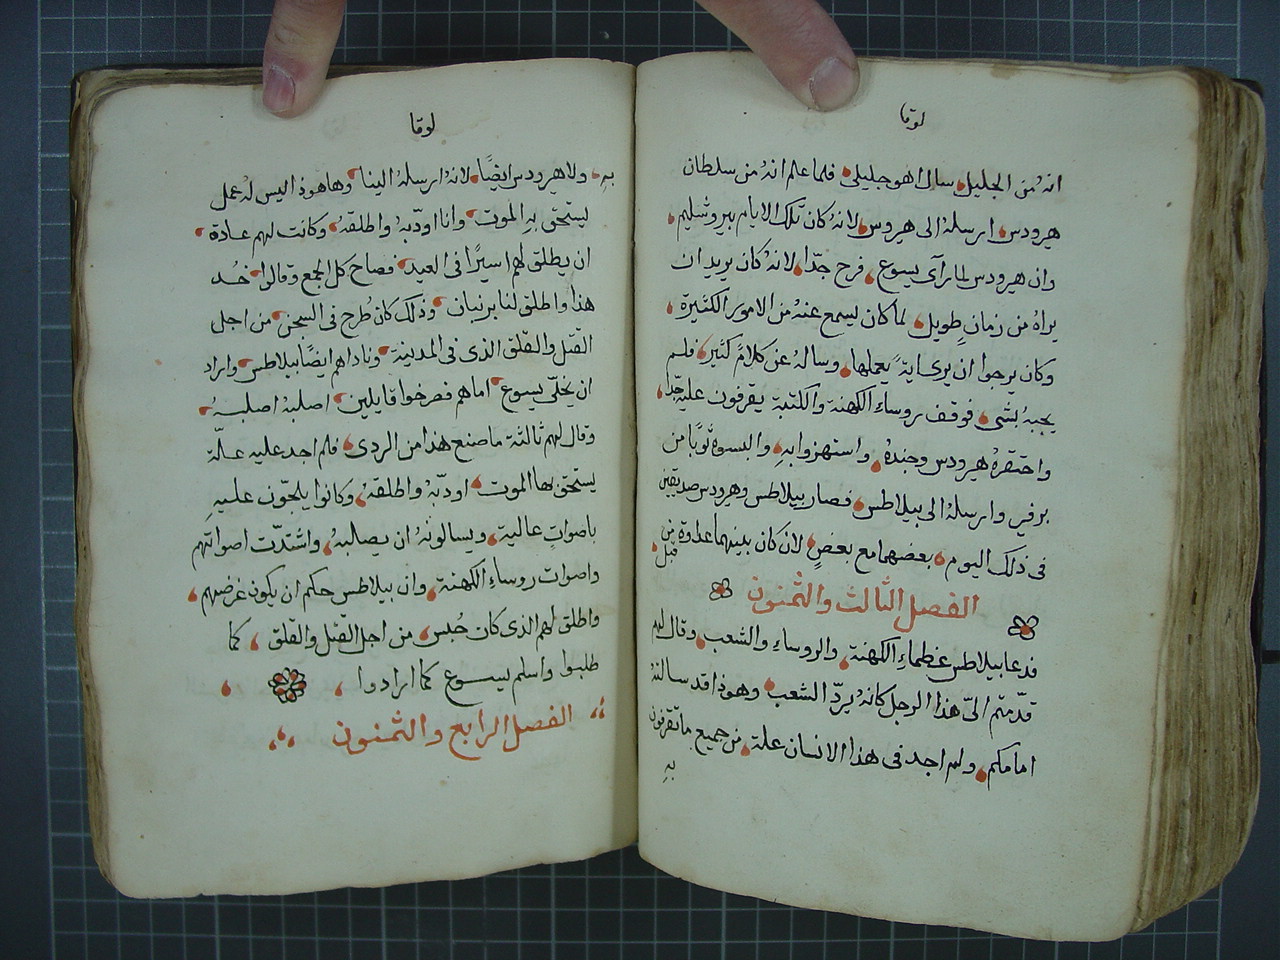 لوقا
انهُ من الجليل سال اهو جليلي فلما علم انهُ من سلطان
هيرودس ارسلهُ الى هيروس لانهُ كان تلك الايام بيروشليم
وان هيرودس لما رآى يسوع فرح جدّا لانهُ كان يريد ان
يراهُ من زمانٍ طويل لما كان يسمع عنهُ من الامور الكثيرة
وكان يرجوا ان يرى ايةً يعملها وسالهُ عن كلامٍ كثير فلم
يجبهُ بشي فوقف روساء الكهنة والكتبة يقرفون عليهِ جّدا
واحتقرهُ هيرودس وجندهُ واستهزوا بهِ والبسوهُ ثوبًا من
برفير وارسلهُ الى بيلاطس فصار بيلاطس وهيرودس صديقين
فى ذلك اليوم بعضهما مع بعضٍ لان كان بينهما عداوة من قبل
الفصل الثالث والثمنون
فدعا بيلاطس عظماء الكهنة والروساء والشعب وقال لهم
قدّمتم الىّ هذا الرجل كانهُ يردّ الشعب وهوذا قد سالتهُ
امامكم ولم اجد فى هذا الانسان علة من جميع ما تقرفون
بهِ
لوقا
بهِ ولا هيرودس ايضًا لانهُ ارسلهُ الينا وها هوذا ليس لهُ عمل
يستحق بهِ الموت وانا اودّبهُ واطلقهُ وكانت لهم عادة
ان يطلق لهم اسيرًا فى العيد فصاح كل الجمع وقالوا خُد
هذا واطلق لنا برنبان وذلك كان طُرح فى السجن من اجل
القتل والقلق الذى فى المدينة وناداهم ايضًا بيلاطس واراد
ان يخلّي يسوع اماهم فصرخوا قايلين اصلبهُ اصلبهُ
وقال لهم ثالثة ما صنع هذا من الردى فلم اجد عليه علّة
يستحق بها الموت اودّبهُ واطلقهُ وكانوا يلحّون عليهِ
باصواتٍ عالية ويسالونهُ ان يصلبهُ واشتدّت اصواتهم
واصوات روساء الكهنة وان بيلاطس حكم ان يكون غرضهم
واطلق لهم الذى كان حُبس من اجل القتل والقلق كما
طلبوا واسلم يسوع كما ارادوا
الفصل الرابع والثمنون